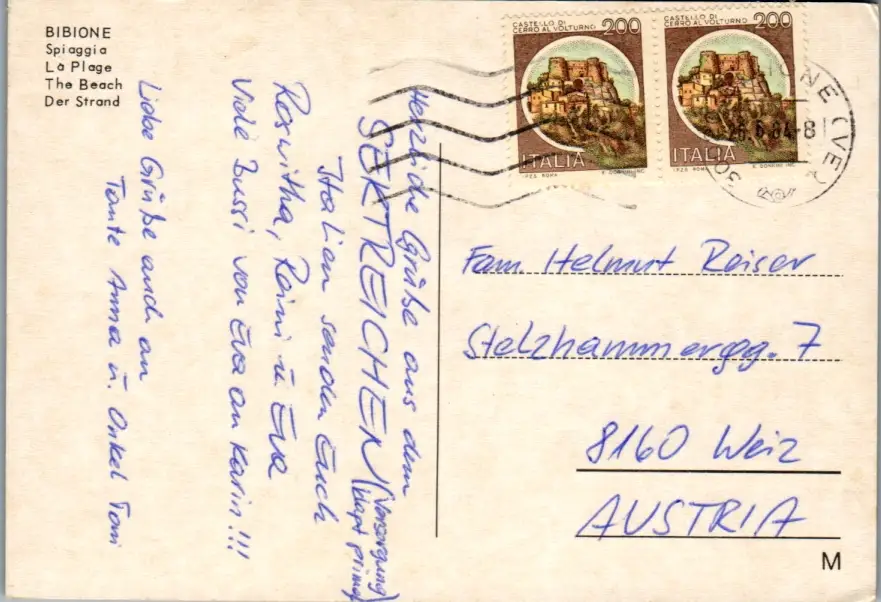 BIBIONE
Spiaggia
La Plage
The Beach
Der Strand
CASTELLO DI
CERRO AL VOLTURNO 200
ITALIA
I.P.Z.S. ROMA
CASTELLO DI
CERRO AL VOLTURNO 200
ITALIA
I.P.Z.S. ROMA
IONE (VE)
6.84-8
Herzliche Grüße aus dem
SEKTREICHEN (Versorgung
klappt prima)
Italien senden Euch
Roswitha, Reini u. Eva
Viele Bussi von Eva an Karin!!!
Liebe Grüße auch an
Tante Anna u. Onkel Toni
Fam. Helmut Reiser
Stelzhammergg. 7
8160 Weiz
AUSTRIA
M